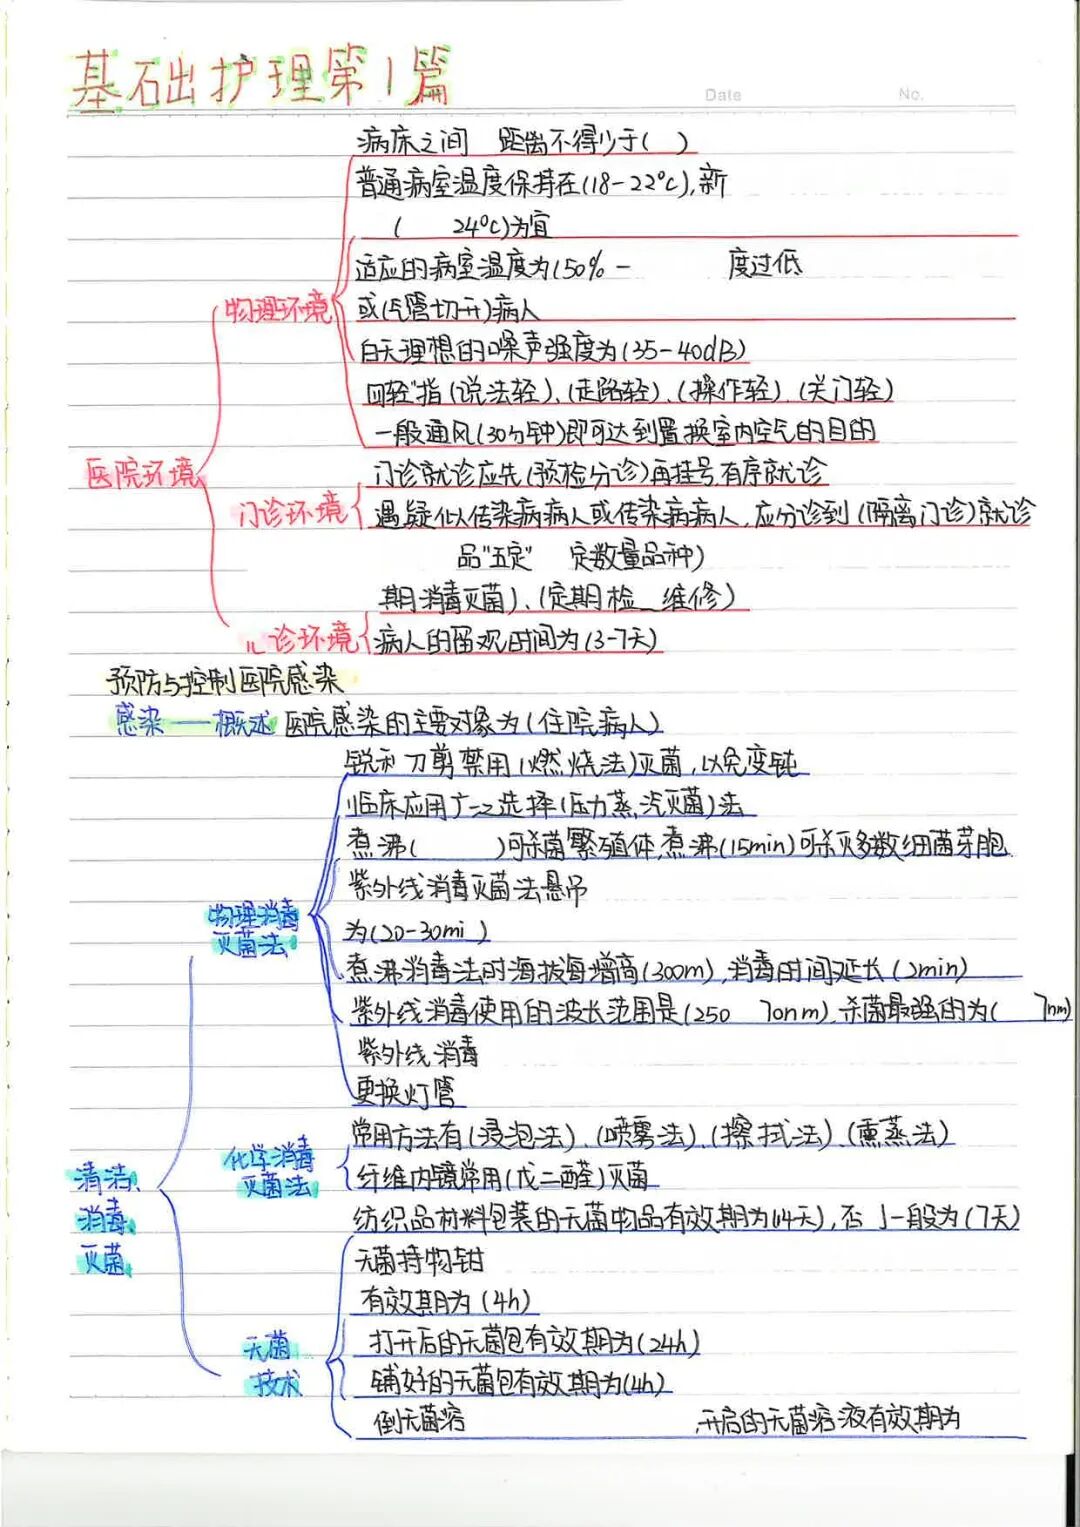 基础护理第1篇
Date No.
病床之间 距离不得少于( )
普通病室温度保持在(18-22°C),新
( 24°C)为宜
适应的病室温度为(50%- 度过低
或(气管切开)病人
物理环境
白天理想的噪声强度为(35-40dB)
四轻"指(说法轻)、(走路轻)、(操作轻)、(关门轻)
一般通风(30分钟)即可达到置换室内空气的目的
医院环境
门诊就诊应先(预检分诊)再挂号,有序就诊
门诊环境
遇疑似传染病病人或传染病病人,应分诊到(隔离门诊)就诊
品"五定" 定数量品种)
期消毒灭菌)、(定期检 维修)
诊环境
病人的留观时间为(3-7天)
预防与控制医院感染
感染——概述 医院感染的主要对象为(住院病人)
锐利刀剪禁用(燃烧法)灭菌,以免变钝
临床应用广之选择(压力蒸汽灭菌)法
煮沸( )可杀菌繁殖体,煮沸(15min)可杀灭多数细菌芽胞
紫外线消毒灭菌法悬吊
物理消毒
灭菌法
为(20-30mi )
煮沸消毒法时海拔每增高(300m),消毒时间延长(2min)
紫外线消毒使用的波长范围是(250 70nm),杀菌最强的为( 7nm)
紫外线消毒
更换灯管
常用方法有(浸泡法)、(喷雾法)、(擦拭法)、(熏蒸法)
化学消毒
灭菌法
纤维内镜常用(戊二醛)灭菌
清洁、
消毒、
灭菌
纺织品材料包装的无菌物品有效期为(14天),否 一般为(7天)
无菌持物钳
有效期为(4h)
打开后的无菌包有效期为(24h)
无菌
技术
铺好的无菌包有效期为(4h)
倒无菌溶 ,开启的无菌溶液有效期为